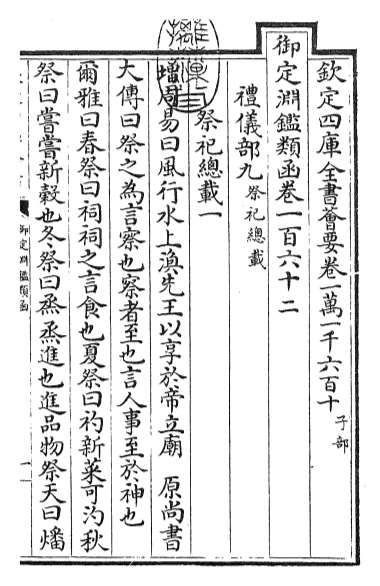 欽定四庫全書薈要卷一萬一千六百十 子部
御定淵鑑類函卷一百六十二
禮儀部九 祭祀總載
祭祀總載一
增周易曰風行水上渙先王以享於帝立廟 原尚書
大傳曰祭之為言察也察者至也言人事至於神也
爾雅曰春祭曰祠祠之言食也夏祭曰礿新菜可汋秋
祭曰嘗嘗新穀也冬祭曰烝烝進也進品物祭天曰燔
御定淵鑑類函
一